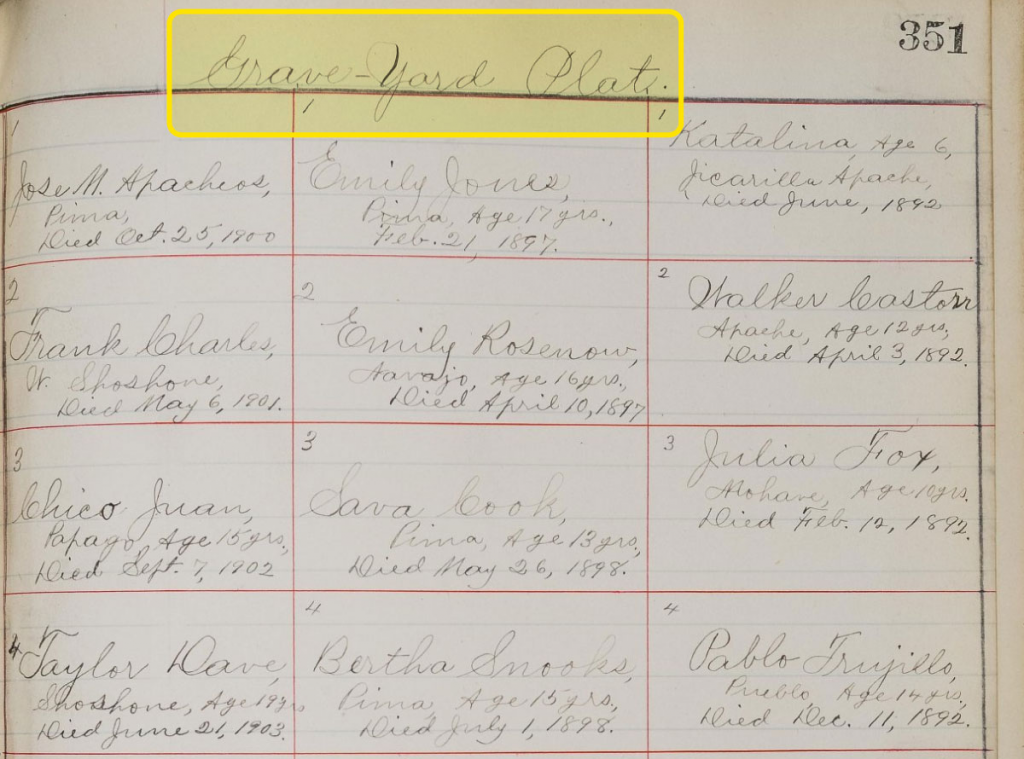 351
Grave-Yard Plat.
1
Jose M. Apacheos,
Pima,
Died Oct. 25, 1900
1
Emily Jones,
Pima, Age 17 yrs.,
Feb. 21, 1897.
1
Katalina, Age 6,
Jicarilla Apache,
Died June, 1892
2
Frank Charles,
W. Shoshone,
Died May 6, 1901.
2
Emily Rosenow,
Navajo, Age 16 yrs.,
Died April 10, 1897
2
Walker Castorr
Apache, Age 12 yrs,
Died April 3, 1892.
3
Chico Juan,
Papago Age 15 yrs,
Died Sept. 7, 1902
3
Sava Cook,
Pima, Age 13 yrs,
Died May 26, 1898.
3
Julia Fox,
Mohave, Age 10 yrs.
Died Feb. 12, 1892.
4
Taylor Dave,
Shoshone, Age 19 yrs
Died June 21, 1903.
4
Bertha Snooks,
Pima, Age 15 yrs,
Died July 1, 1898.
4
Pablo Trujillo,
Pueblo, Age 14 yrs,
Died Dec. 11, 1892.